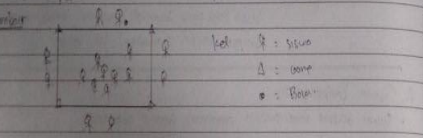 Ket : siswa
: cone
: Bola